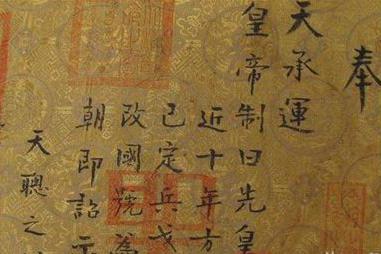 奉
天承運
皇帝制曰先皇
近十年方
已定兵戈
改國號爲
朝即詔
天聰之